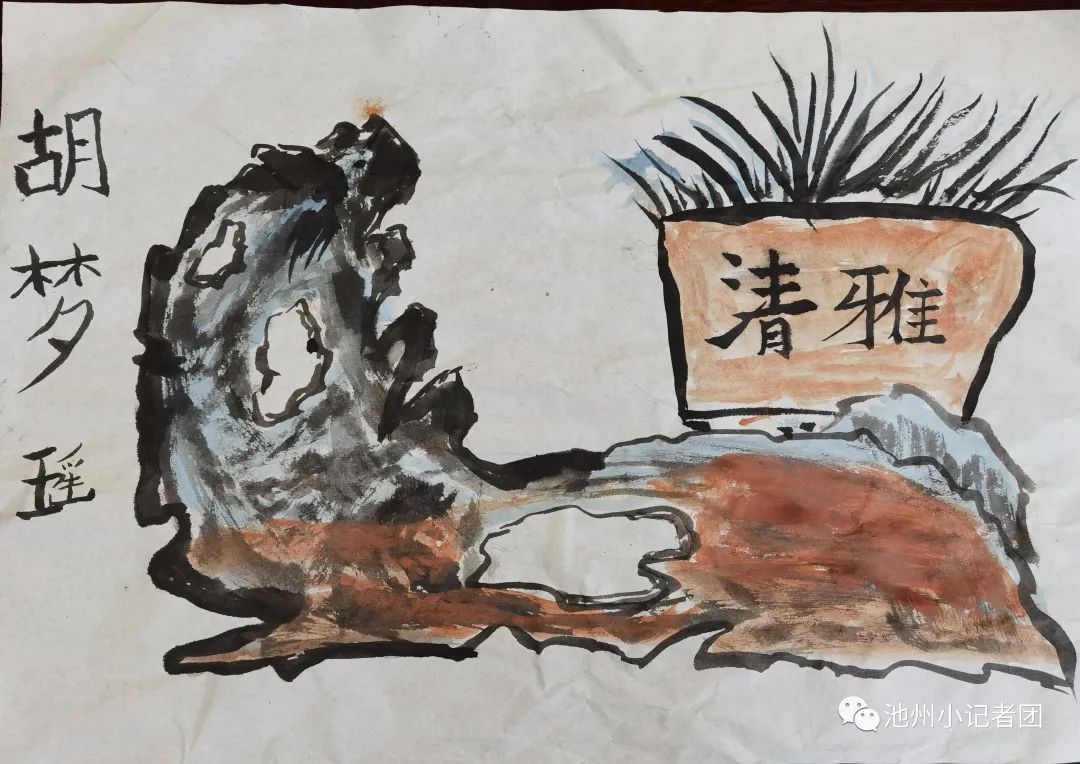 胡梦瑶
清雅
池州小记者团